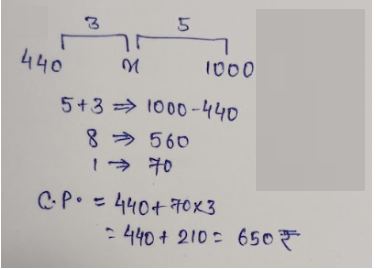 3 5
440 x 1000
5+3 ⇒ 1000-440
8 ⇒ 560
1 → 70
C.P. = 440+70×3
= 440+210 = 650 ₹